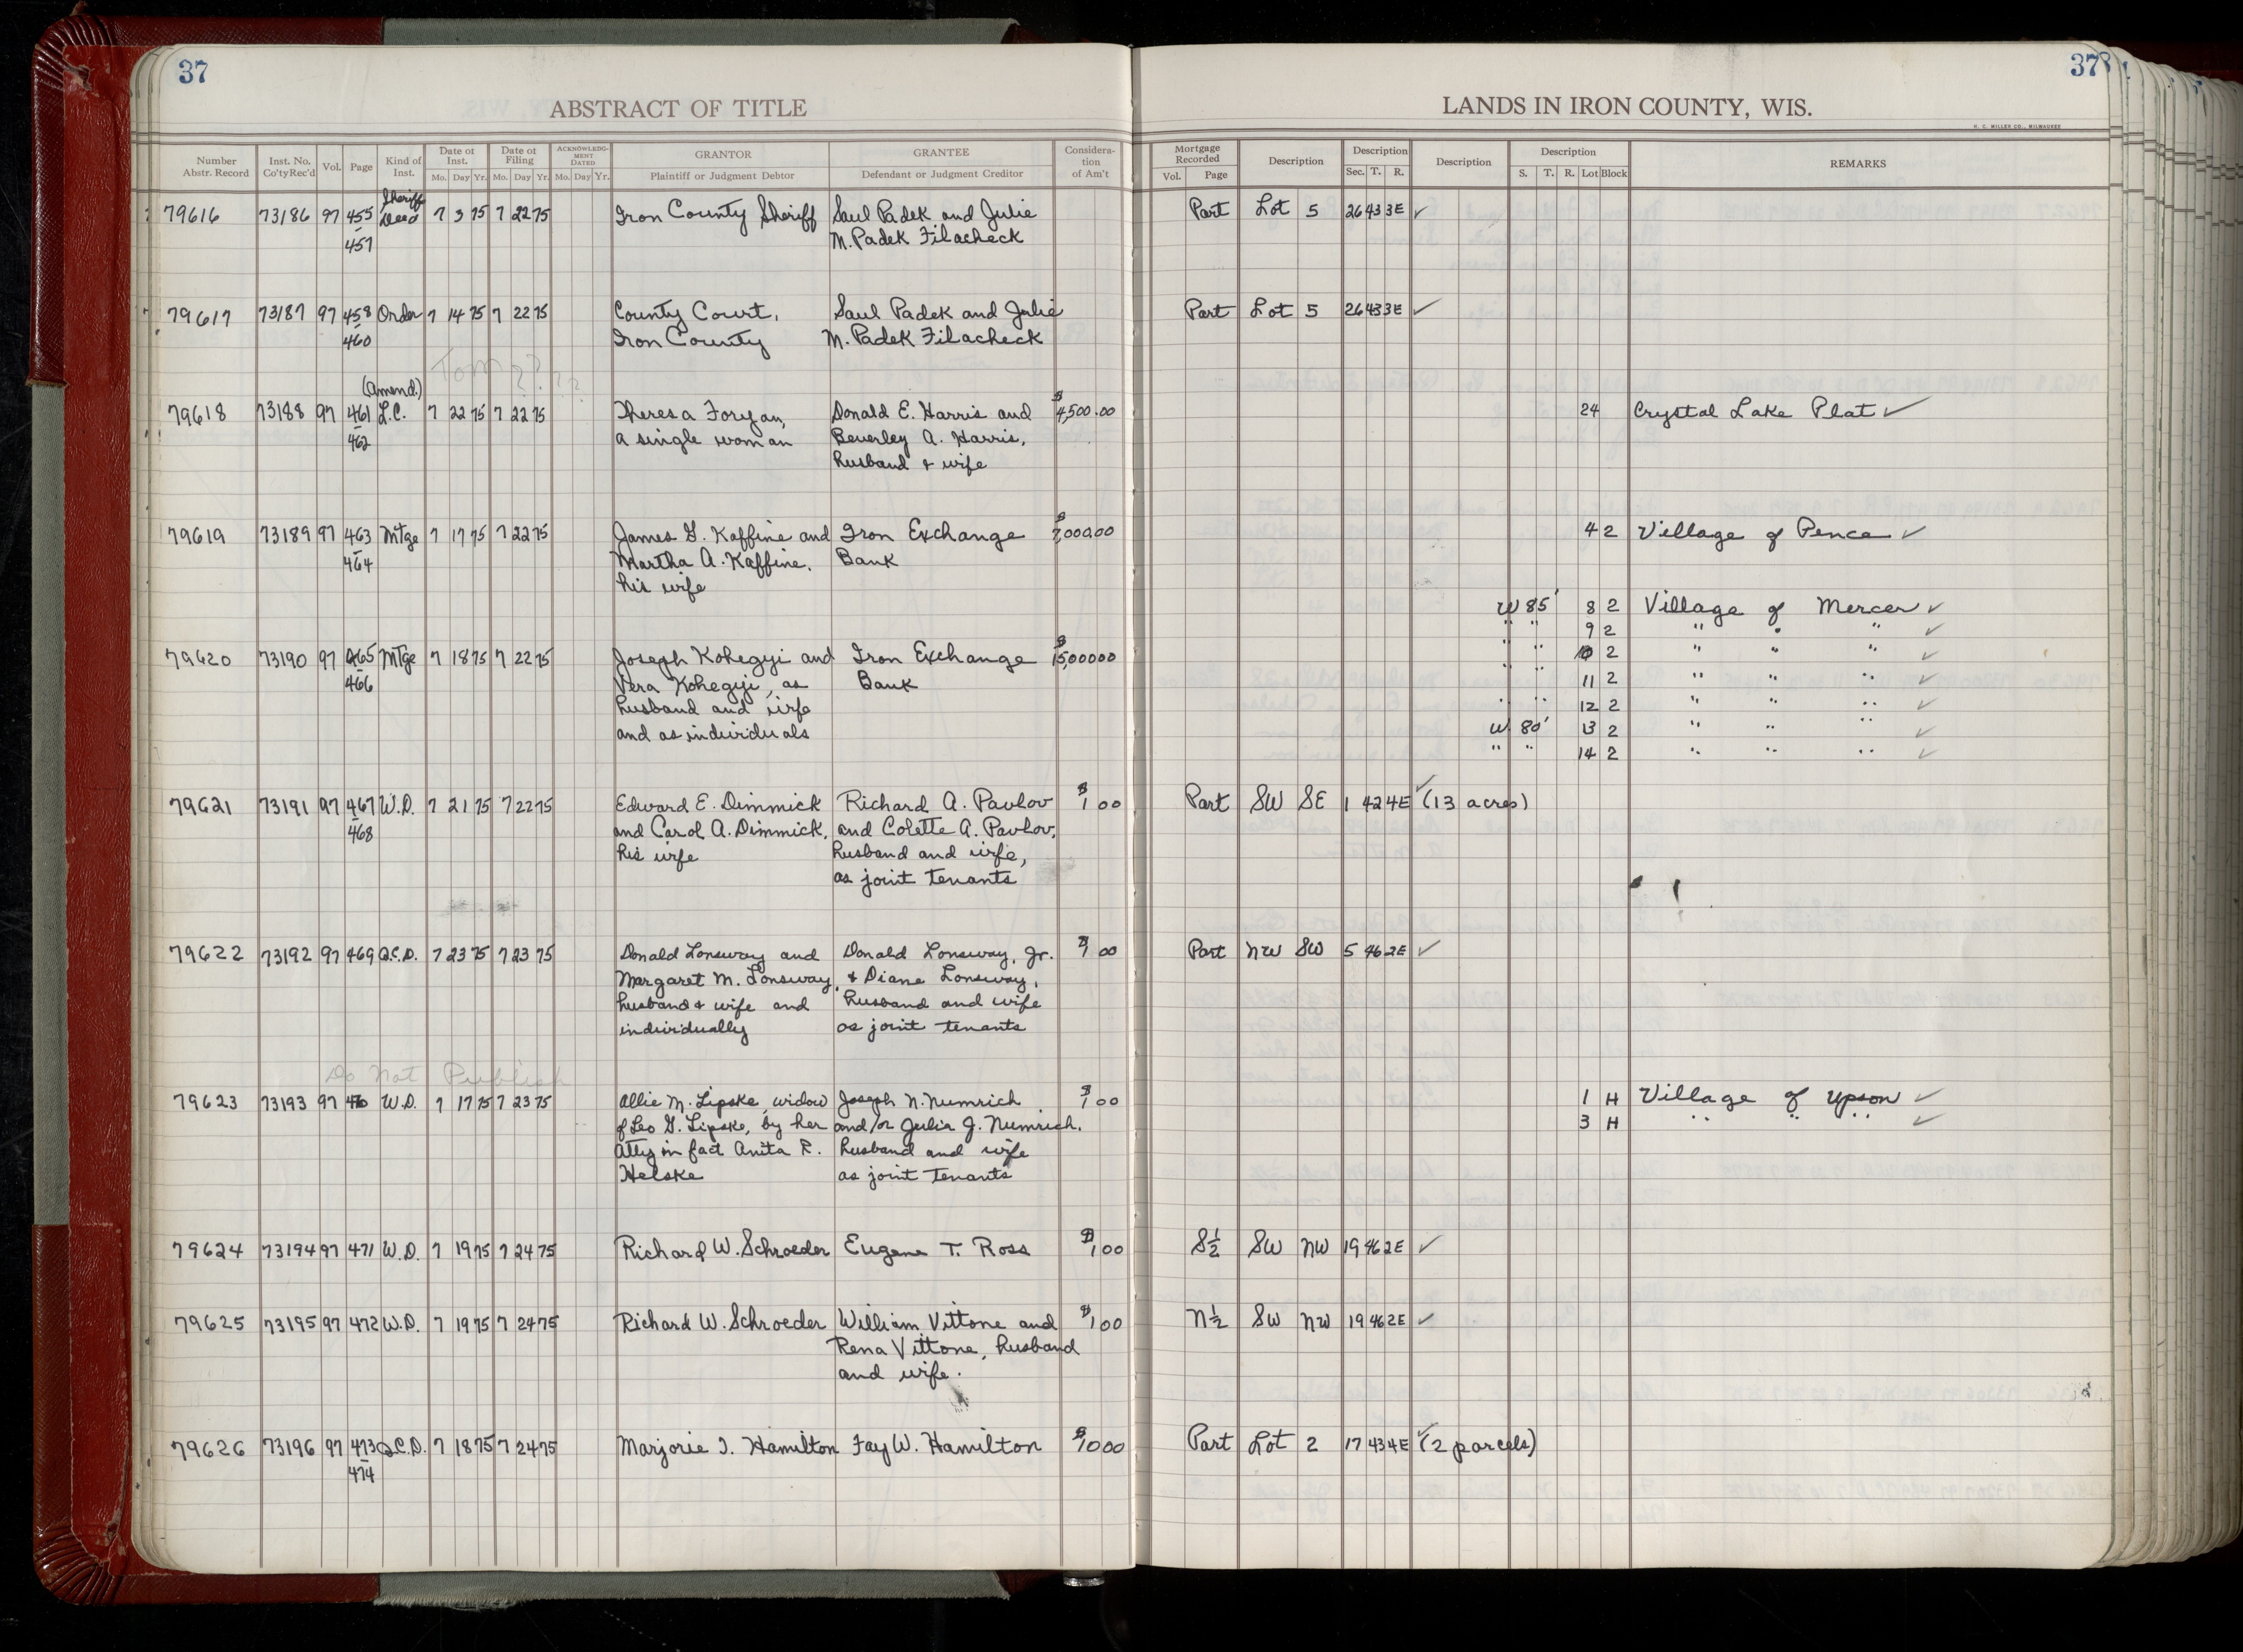 37
37
ABSTRACT OF TITLE
LANDS IN IRON COUNTY, WIS.
H. C. MILLER CO., MILWAUKEE
Number Abstr. Record | Inst. No. Co'ty Rec'd | Vol. | Page | Kind of Inst. | Date of Inst. Mo. Day Yr. | Date of Filing Mo. Day Yr. | ACKNOWLEDG-MENT DATED Mo. Day Yr. | GRANTOR Plaintiff or Judgment Debtor | GRANTEE Defendant or Judgment Creditor | Considera-tion of Am't | Mortgage Recorded Vol. Page | Description | Description Sec. T. R. | Description | Description S. T. R. Lot Block | REMARKS
Sheriff
79616 73186 97 455 Deed 7 3 75 7 22 75 Iron County Sheriff Saul Padek and Julie Part Lot 5 26 43 3E ✓
457 M. Padek Filacheck
79617 73187 97 458 Order 7 14 75 7 22 75 County Court, Saul Padek and Julie Part Lot 5 26 43 3E ✓
460 Iron County M. Padek Filacheck
Tom ????
(Amend.)
79618 73188 97 461 L.C. 7 22 75 7 22 75 Theresa Foryan, Donald E. Harris and $4,500.00 24 Crystal Lake Plat ✓
462 a single woman Beverley A. Harris,
husband & wife
79619 73189 97 463 Mtge 7 17 75 7 22 75 James G. Kaffine and Iron Exchange $7,000.00 4 2 Village of Pence ✓
464 Martha A. Kaffine, Bank
his wife
W 85' 8 2 Village of Mercer ✓
" " 9 2 " " " ✓
" " 10 2 " " " ✓
79620 73190 97 465 Mtge 7 18 75 7 22 75 Joseph Kohegyi and Iron Exchange $15,000.00
466 Vera Kohegyi, as Bank " " 11 2 " " " ✓
husband and wife " " 12 2 " " " ✓
and as individuals W 80' 13 2 " " " ✓
" " 14 2 " " " ✓
79621 73191 97 467 W.D. 7 21 75 7 22 75 Edward E. Dimmick Richard A. Pavlov $1 00 Part SW SE 1 42 4E ✓ (13 acres)
468 and Carol A. Dimmick, and Colette A. Pavlov,
his wife husband and wife,
as joint tenants
79622 73192 97 469 Q.C.D. 7 23 75 7 23 75 Donald Lonsway and Donald Lonsway, Jr. $1 00 Part NW SW 5 46 2E ✓
Margaret M. Lonsway, & Diane Lonsway,
husband & wife and husband and wife
individually as joint tenants
Do Not Publish
79623 73193 97 470 W.D. 7 17 75 7 23 75 Allie M. Lipske, widow Joseph N. Numrich $1 00 1 H Village of Upson ✓
of Leo G. Lipske, by her and/or Julia J. Numrich, 3 H " " " ✓
Atty in fact Anita R. husband and wife
Helske as joint tenants
79624 73194 97 471 W.D. 7 19 75 7 24 75 Richard W. Schroeder Eugene T. Ross $1 00 S½ SW NW 19 46 2E ✓
79625 73195 97 472 W.D. 7 19 75 7 24 75 Richard W. Schroeder William Vittone and $1 00 N½ SW NW 19 46 2E ✓
Rena Vittone, husband
and wife.
79626 73196 97 473 Q.C.D. 7 18 75 7 24 75 Marjorie I. Hamilton Fay W. Hamilton $10 00 Part Lot 2 17 43 4E ✓ (2 parcels)
474